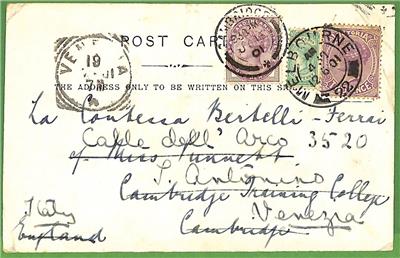 POST CARD
THE ADDRESS ONLY TO BE WRITTEN ON THIS SIDE
VENEZIA
CAMBRIDGE
MELBOURNE
22
La Contessa Bertelli-Ferrai
Calle dell' Arco
3520
of Miss Punnett
S. Antonino
Cambridge Training College
Italy
Venezia
England
Cambridge